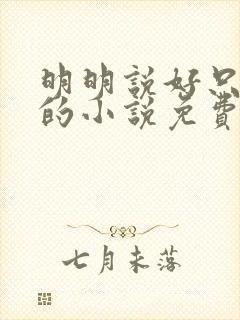 明明説好只
的小説免費
七月未落